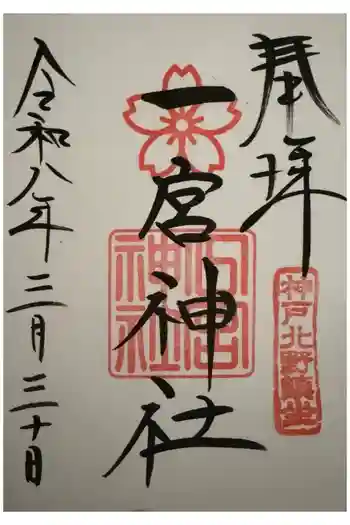 奉拝
神戸北野鎮坐
一宮神社
一宮神社
令和八年三月三十日